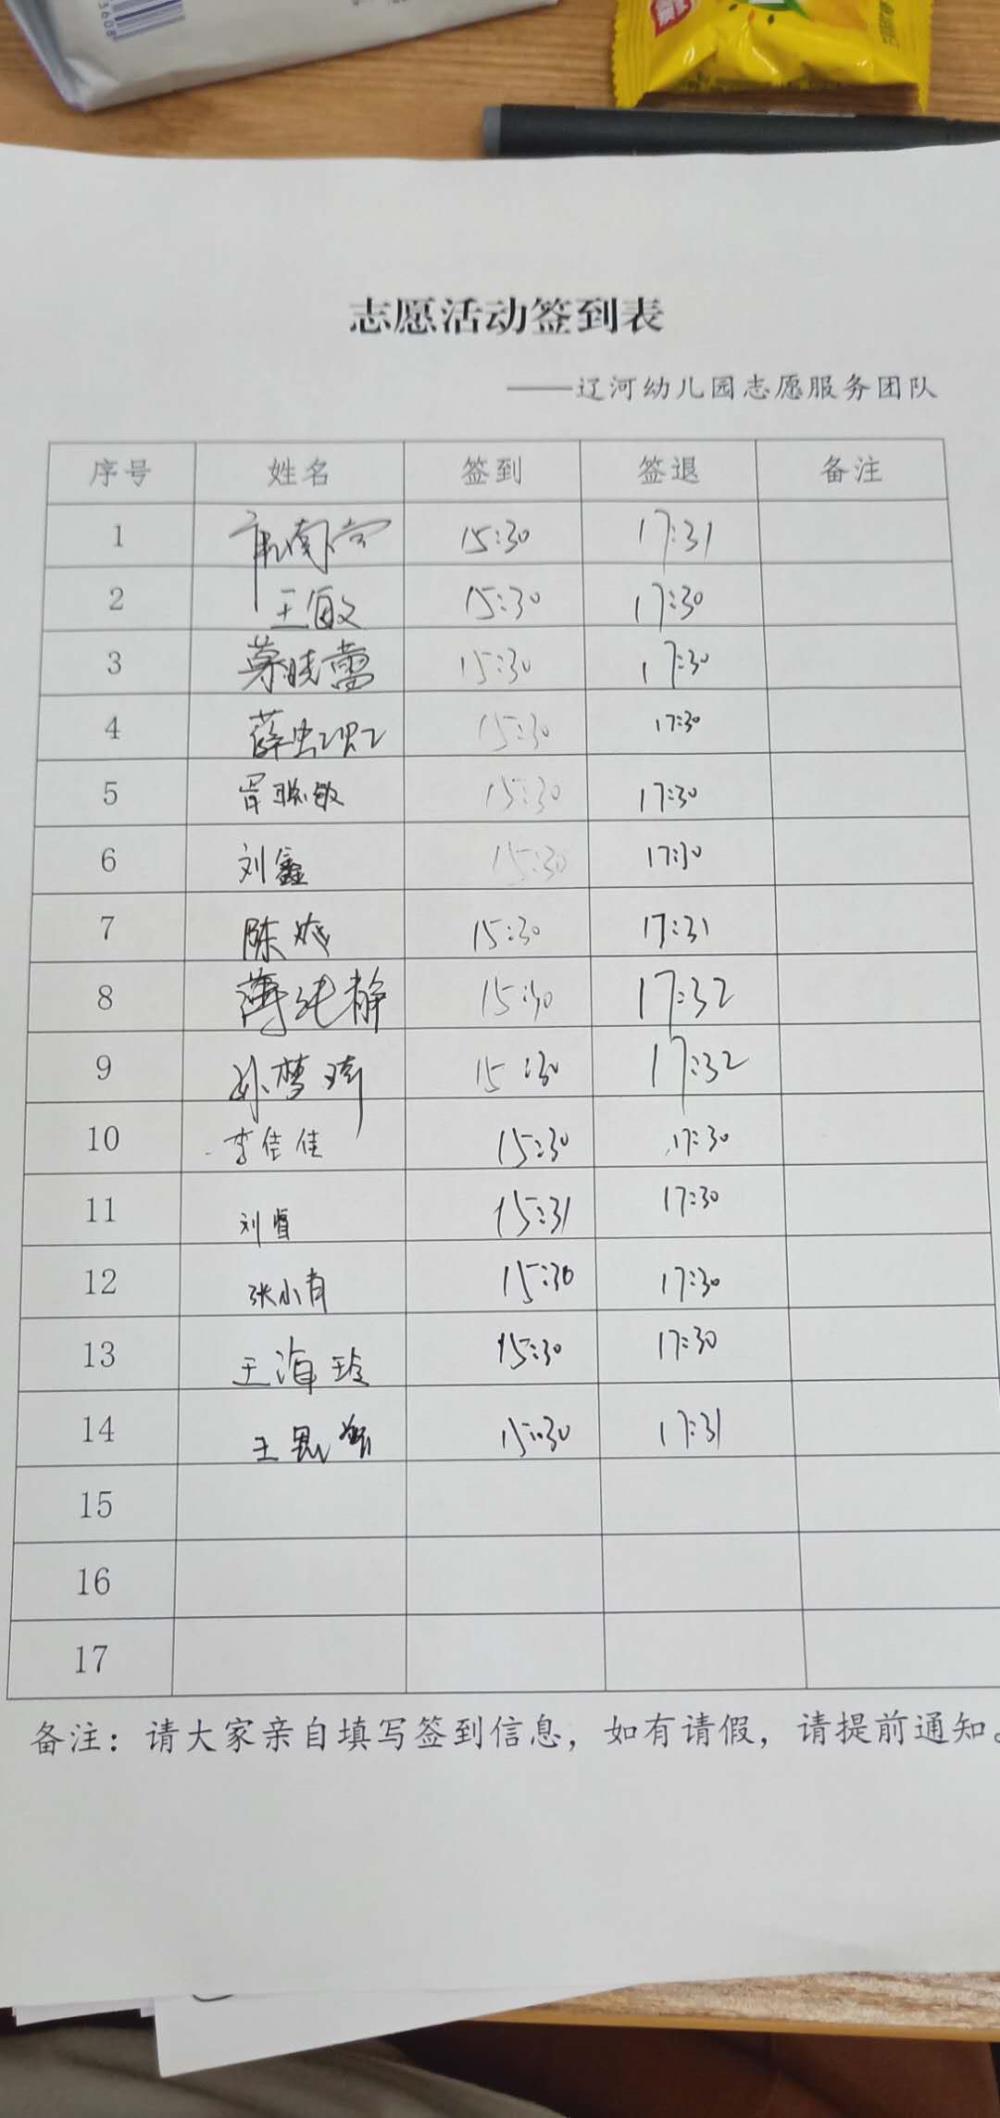 志愿活动签到表
——辽河幼儿园志愿服务团队
序号 姓名 签到 签退 备注
1 15:30 17:31
2 王敏 15:30 17:30
3 晓蕾 15:30 17:30
4 薛 15:30 17:30
5 15:30 17:30
6 刘鑫 15:30 17:30
7 陈 15:30 17:31
8 薄纯静 15:30 17:32
9 孙梦琦 15:30 17:32
10 李佳佳 15:30 17:30
11 刘睿 15:31 17:30
12 张小月 15:30 17:30
13 王海玲 15:30 17:30
14 王 15:30 17:31
15
16
17
备注：请大家亲自填写签到信息，如有请假，请提前通知。